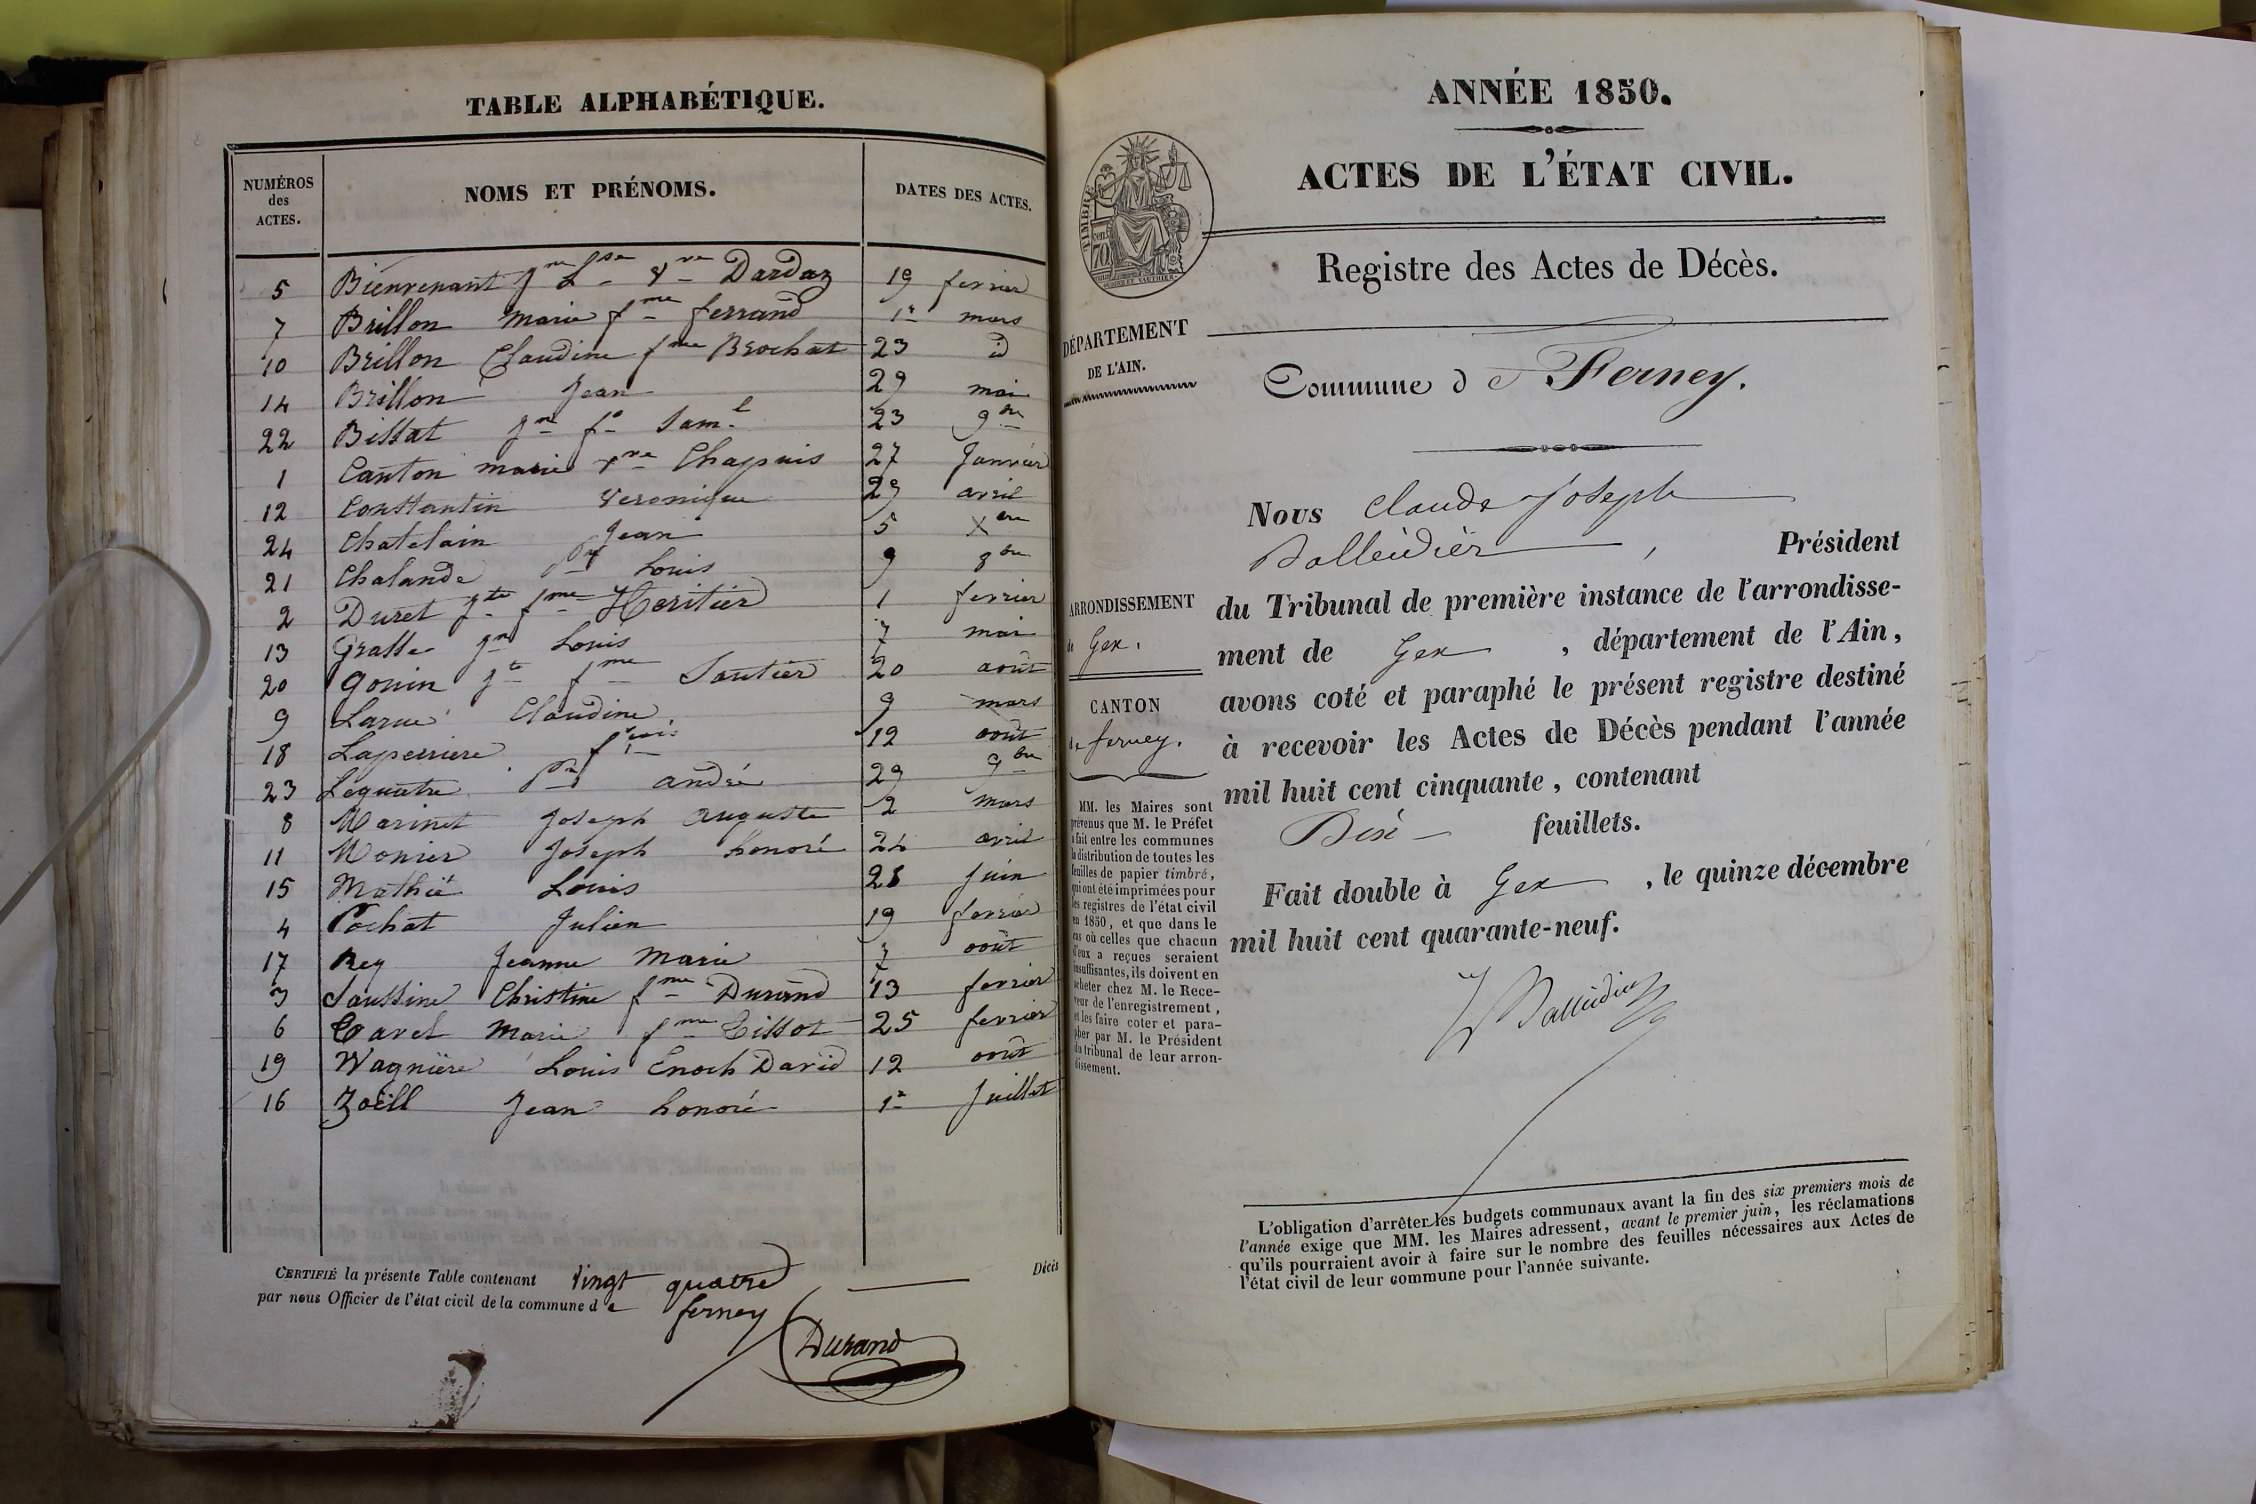 TABLE ALPHABÉTIQUE.
NUMÉROS des ACTES. NOMS ET PRÉNOMS. DATES DES ACTES.
5 Bienvenant Jne Lse vve Dardaz 19 fevrier
7 Brillon Marie fme ferrand 1er mars
10 Brillon Claudine fme Brochat 23 id
14 Brillon Jean 29 mai
22 Bissat Jn fs Saml 23 9bre
1 Canton marie vve Chapuis 27 Janvier
12 Constantin Veronique 29 avril
24 Chatelain Jean 5 Xbre
21 Chalande Louis 9 8bre
2 Duret Jte fme Heritier 1 fevrier
13 Grasse Jn Louis 7 mai
20 Gonin Jte fme Sautier 20 août
9 Larue Claudine 9 mars
18 Laperriere fçois 12 août
23 Lequatre andré 29 9bre
8 Marinet Joseph auguste 2 mars
11 Monier Joseph honoré 24 avril
15 Mathié Louis 28 Juin
4 Pochat Julien 19 fevrier
17 Rey Jeanne Marie 7 août
3 Saussine Christine fme Durand 13 fevrier
6 Tavel Marie fme Tissot 25 fevrier
19 Wagnière Louis Enoch David 12 août
16 Zoëll Jean honoré 1er Juillet
CERTIFIÉ la présente Table contenant Vingt quatre Décès
par nous Officier de l'état civil de la commune d e ferney
Durand
ANNÉE 1850.
ACTES DE L'ÉTAT CIVIL.
Registre des Actes de Décès.
TIMBRE
70
DÉPARTEMENT
DE L'AIN.
Commune de Ferney.
ARRONDISSEMENT
de Gex.
CANTON
de ferney.
MM. les Maires sont
prévenus que M. le Préfet
a fait entre les communes
la distribution de toutes les
feuilles de papier timbré,
qui ont été imprimées pour
les registres de l'état civil
en 1850, et que dans le
cas où celles que chacun
d'eux a reçues seraient
insuffisantes, ils doivent en
acheter chez M. le Rece-
veur de l'enregistrement,
et les faire coter et para-
pher par M. le Président
du tribunal de leur arron-
dissement.
Nous Claude Joseph
Balleidier, Président
du Tribunal de première instance de l'arrondisse-
ment de Gex, département de l'Ain,
avons coté et paraphé le présent registre destiné
à recevoir les Actes de Décès pendant l'année
mil huit cent cinquante, contenant
Dix feuillets.
Fait double à Gex, le quinze décembre
mil huit cent quarante-neuf.
Balleidier
L'obligation d'arrêter les budgets communaux avant la fin des six premiers mois de
l'année exige que MM. les Maires adressent, avant le premier juin, les réclamations
qu'ils pourraient avoir à faire sur le nombre des feuilles nécessaires aux Actes de
l'état civil de leur commune pour l'année suivante.